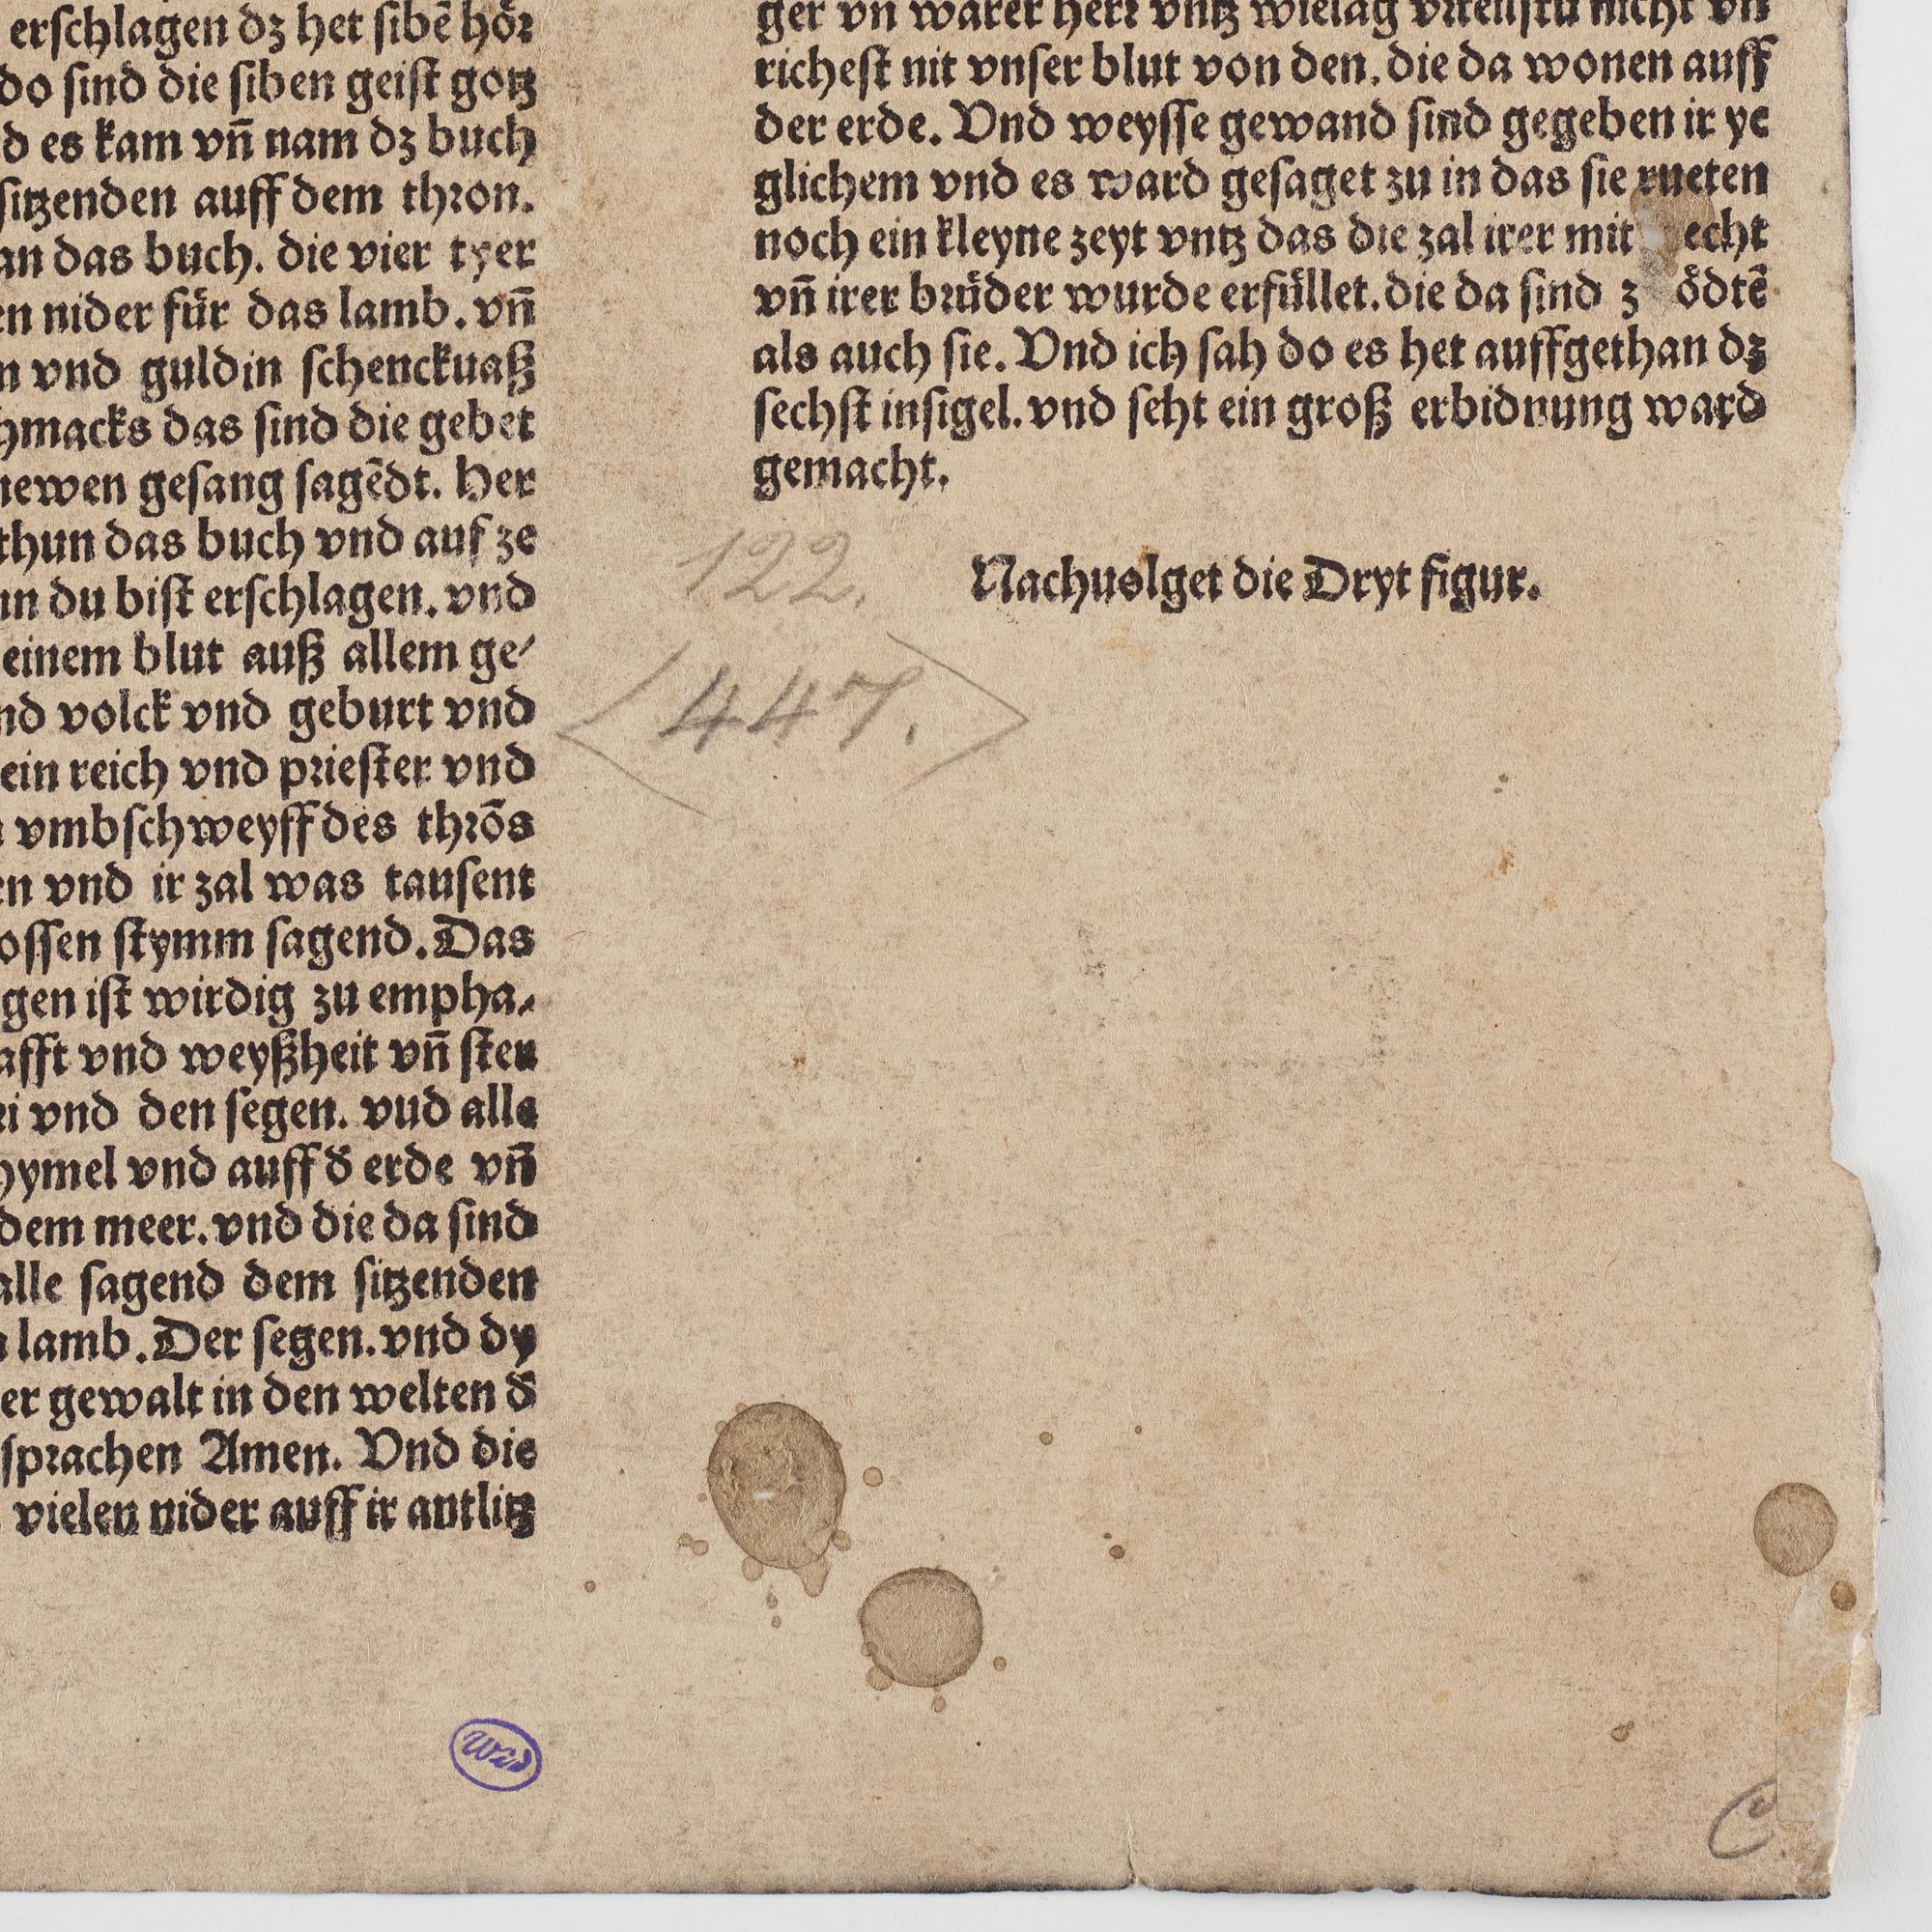 erſchlagen dʒ het ſibē hőꝛ
do ſind die ſiben geiſt gotz
d es kam vn̄ nam dʒ buch
ſitzenden auff dem thꝛon.
an das buch. die vier tyer
en nider fuͤr das lamb. vn̄
n vnd guldin ſchenckuaß
hmacks das ſind die gebet
newen geſang ſagēdt. Her
thun das buch vnd auf ze
nn du biſt erſchlagen. vnd
einem blut auß allem ge⸗
nd volck vnd geburt vnd
ein reich vnd pꝛieſter vnd
vmbſchweyff des thꝛōs
en vnd ir zal was tauſent
oſſen ſtymm ſagend. Das
gen iſt wirdig zu empha⸗
afft vnd weyßheit vn̄ ſter
ri vnd den ſegen. vud alle
hymel vnd auff ð erde vn̄
dem meer. vnd die da ſind
alle ſagend dem ſitzenden
lamb. Der ſegen. vnd dy
er gewalt in den welten ð
ſpꝛachen Amen. Vnd die
vielen nider auff ir antlitz
ger vn̄ warer herꝛ vntz wielag vꝛteilſtu nicht vn̄
richeſt nit vnſer blut von den. die da wonen auff
der erde. Vnd weyſſe gewand ſind gegeben ir ye
glichem vnd es ward geſaget zu in das ſie rueten
noch ein kleyne zeyt vntz das die zal irer mit echt
vn̄ irer bꝛuͤder wurde erfuͤllet. die da ſind z oͤdtē
als auch ſie. Vnd ich ſah do es het auffgethan dʒ
ſechſt inſigel. vnd ſeht ein groß erbidnung ward
gemacht.
Nachuolget die Dryt figur.
122.
447.
C.